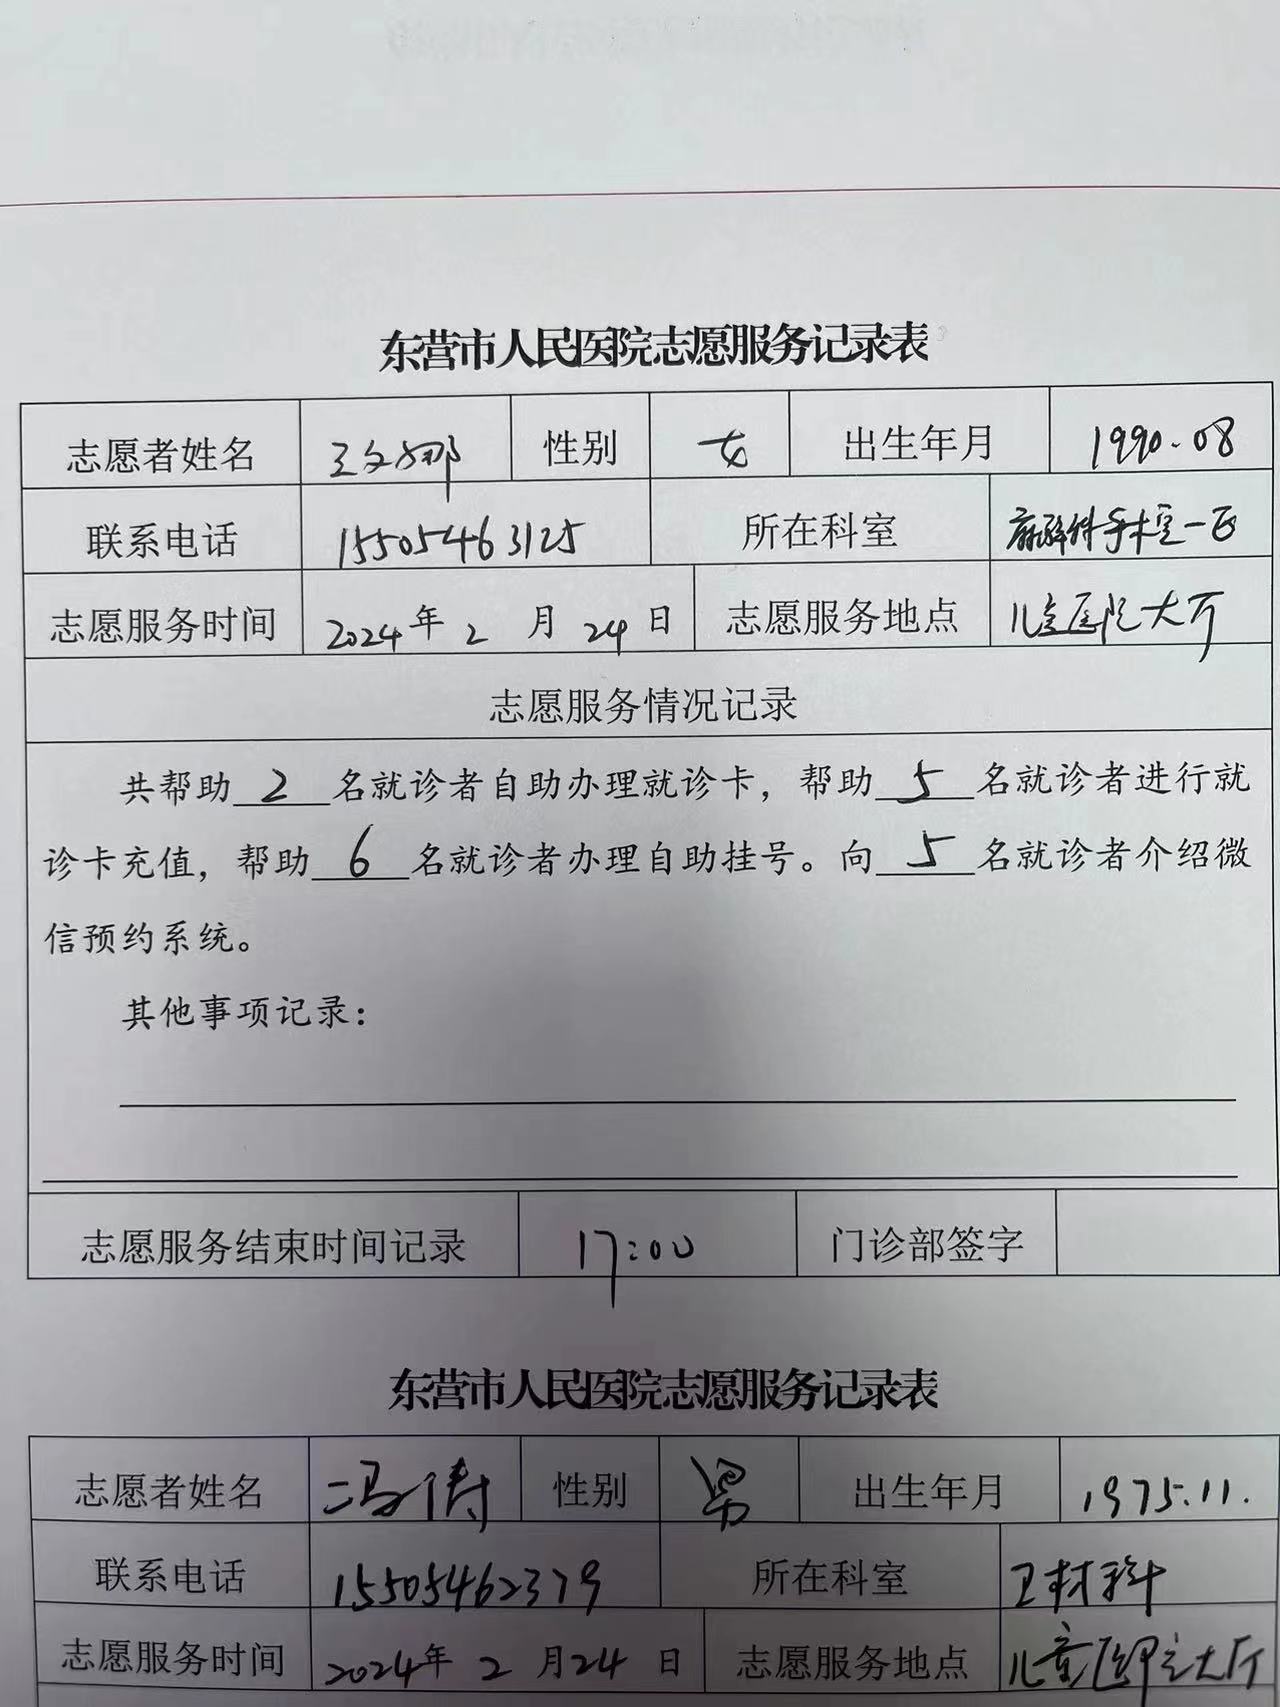 东营市人民医院志愿服务记录表
志愿者姓名 王文娜 性别 女 出生年月 1990.08
联系电话 15505463125 所在科室 麻醉科手术室一区
志愿服务时间 2024年2月24日 志愿服务地点 儿童医院大厅
志愿服务情况记录
共帮助2名就诊者自助办理就诊卡，帮助5名就诊者进行就
诊卡充值，帮助6名就诊者办理自助挂号。向5名就诊者介绍微
信预约系统。
其他事项记录：
志愿服务结束时间记录 17:00 门诊部签字
东营市人民医院志愿服务记录表
志愿者姓名 冯涛 性别 男 出生年月 1975.11.
联系电话 15505462379 所在科室 卫材科
志愿服务时间 2024年2月24日 志愿服务地点 儿童医院大厅